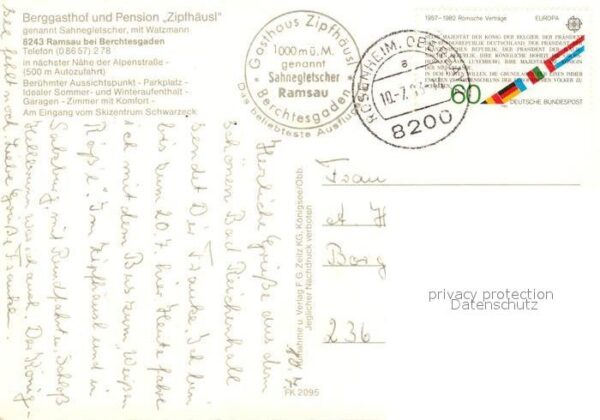 Berggasthof und Pension „Zipfhäusl"
genannt Sahnegletscher, mit Watzmann
8243 Ramsau bei Berchtesgaden
Telefon (0 86 57) 2 78
in nächster Nähe der Alpenstraße -
(500 m Autozufahrt)
Berühmter Aussichtspunkt - Parkplatz -
Idealer Sommer- und Winteraufenthalt -
Garagen - Zimmer mit Komfort -
Am Eingang vom Skizentrum Schwarzeck
* Gasthaus Zipfhäusl *
1000 m ü. M.
genannt
Sahnegletscher
Ramsau
Berchtesgaden
Das beliebteste Ausflug
ROSENHEIM, OBERB
a
10.-7.
8200
1957-1982 Römische Verträge
EUROPA
60
DEUTSCHE BUNDESPOST
Herzliche Grüße aus dem
schönen Bad Reichenhall
sendet Dir Ich bin
bis zum 20.7. hier Heute fahre
ich mit dem Bus zum „Weißen
Rößl". Im Zipfhäusl und in
Salzburg, mit Rundfahrt u. Schloß
Hellbrunn war ich auch. Der König-
see fehlt noch. Liebe Grüße
10.7.
Frau
A H
Borg
236
Aufnahme u. Verlag F. G. Zeitz KG, Königsee/Obb.
Jeglicher Nachdruck verboten
FK 2095
privacy protection
Datenschutz